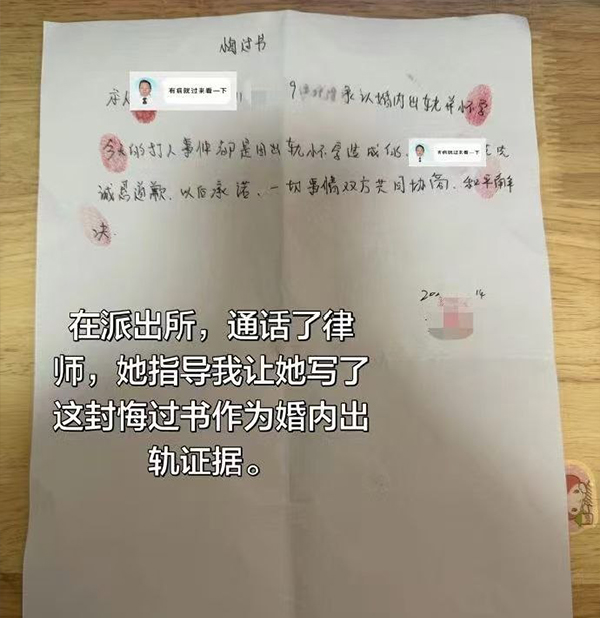 悔过书
本人 有病就过来看一下 9 承认婚内出轨并怀孕
今天的打人事件都是因出轨怀孕造成的. 有病就过来看一下
诚恳道歉. 以后承诺. 一切事情双方共同协商. 和平解
决.
14
在派出所，通话了律
师，她指导我让她写了
这封悔过书作为婚内出
轨证据。